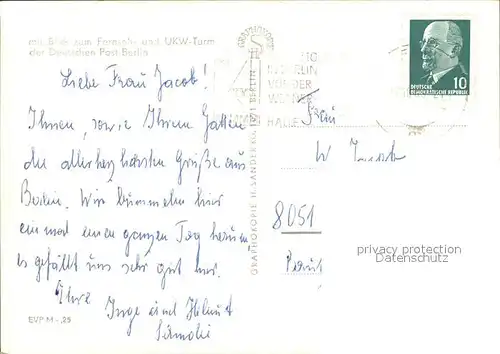 mit Blick zum Fernseh- und UKW-Turm
der Deutschen Post Berlin
Liebe Frau Jacob!
Ihnen, sowie Ihrem Gatten
die allerherzlichsten Grüße aus
Berlin. Wir bummeln hier
einmal einen ganzen Tag herum
es gefällt uns sehr gut hier.
Ihre
Inge und Helmut
EVP M -,25
GRAPHOKOPIE H. SANDER KG BERLIN
BERLIN
VOR DER
HAUE
DEUTSCHE
DEMOKRATISCHE REPUBLIK
10
Frau
W Jacob
8051
privacy protection
Datenschutz